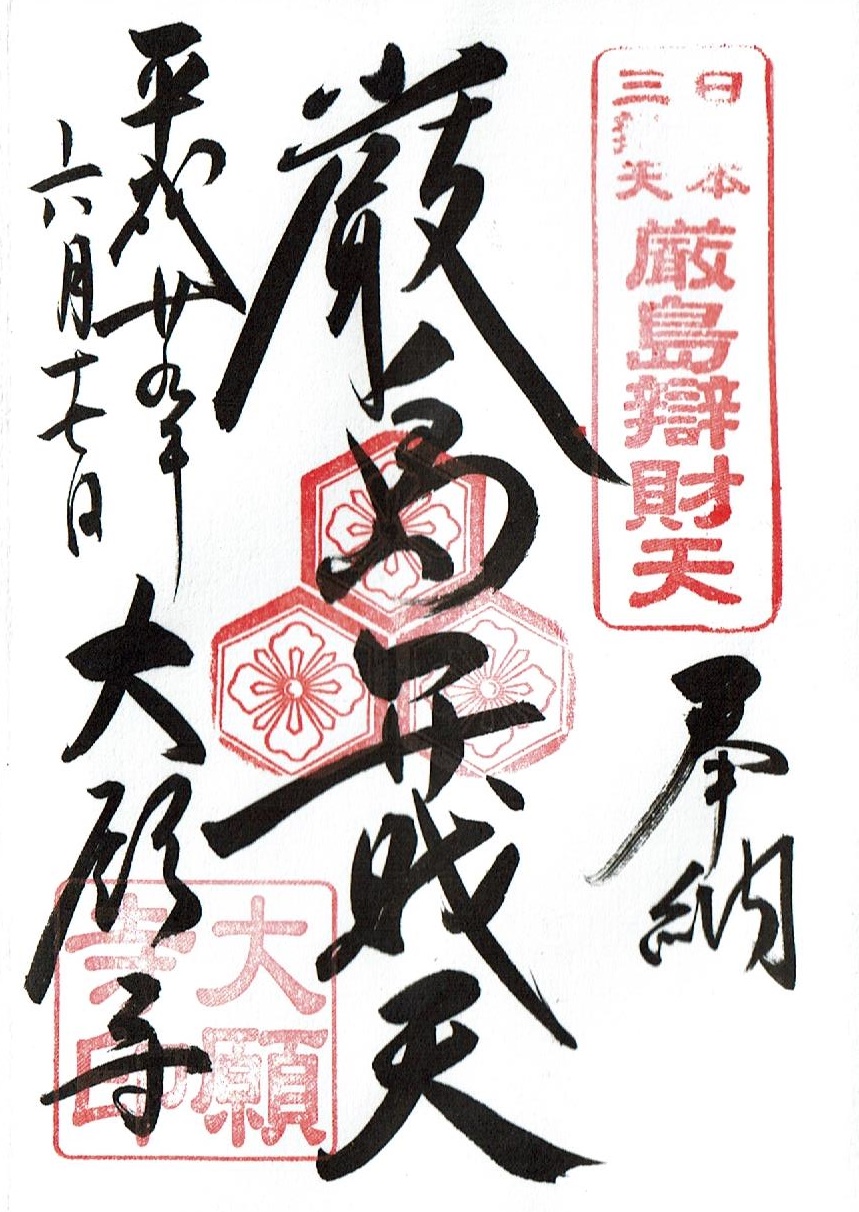 日本
三弁天
厳島辯財天
奉納
厳島弁財天
平成廿九年
六月十七日
大願寺
大願
寺印